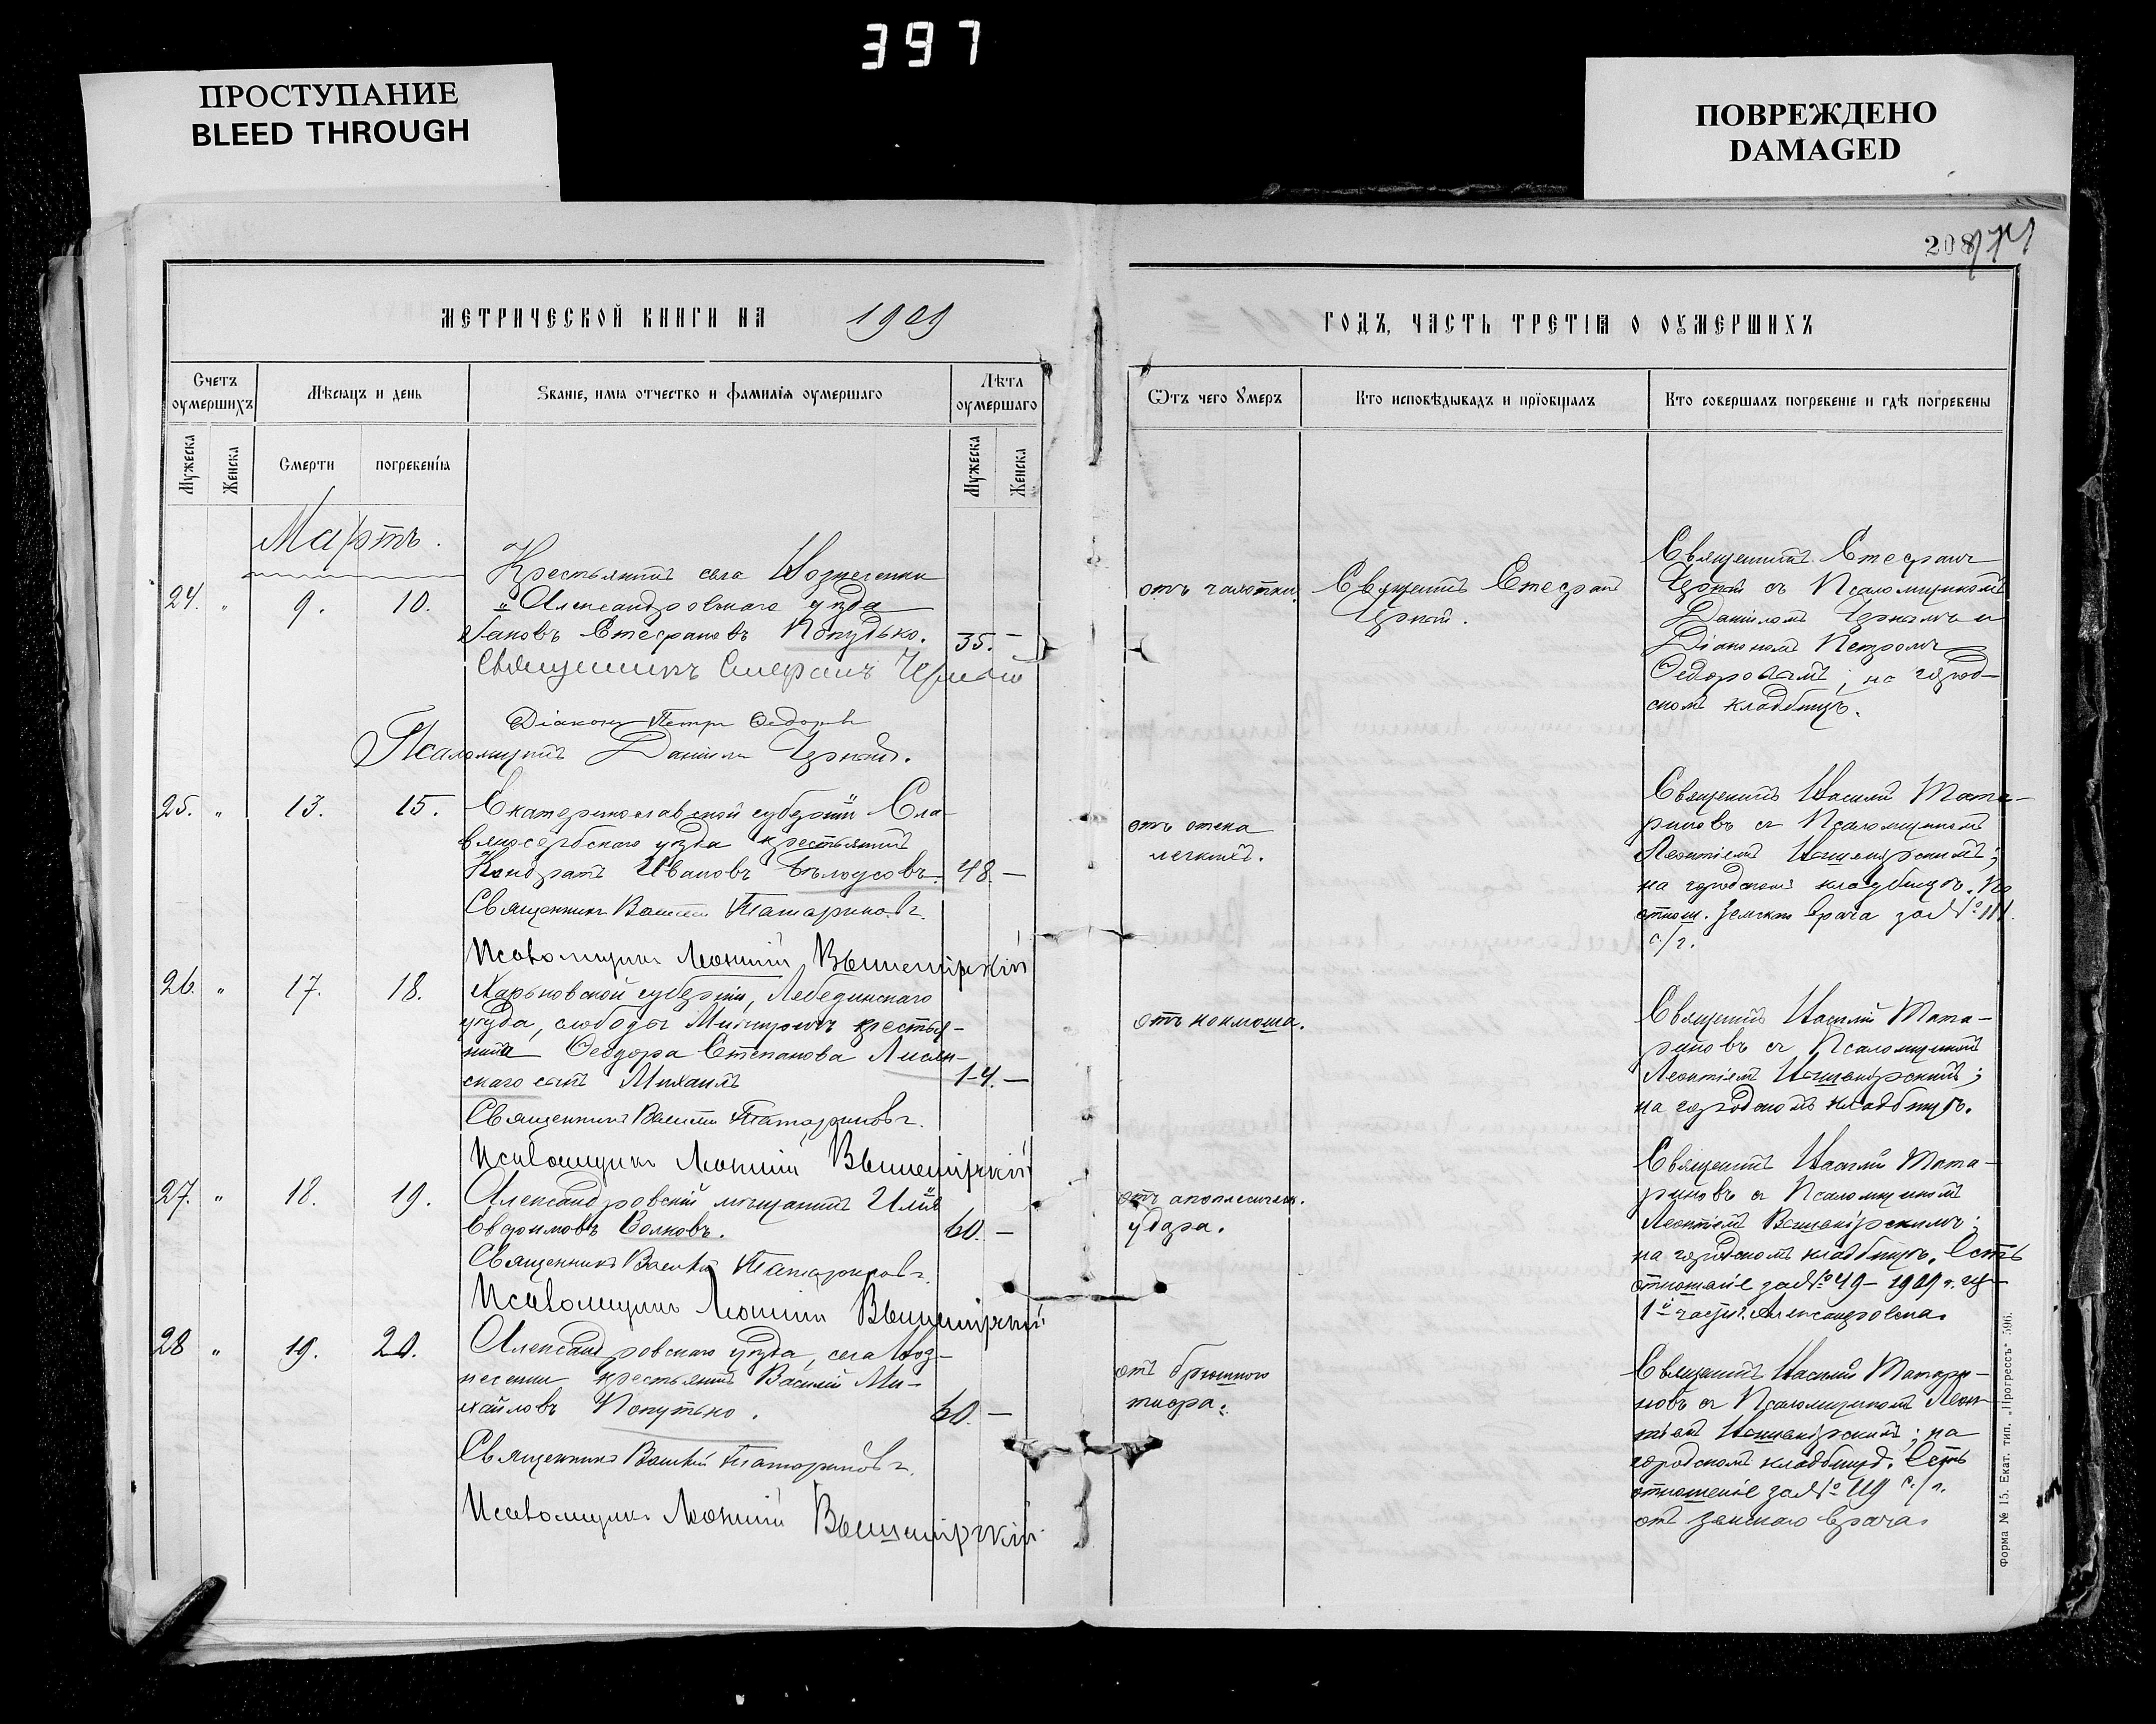 397
ПРОСТУПАНИЕ
BLEED THROUGH
ПОВРЕЖДЕНО
DAMAGED
208
МЕТРИЧЕСКОЙ КНИГИ НА 1909
ГОДЪ, ЧАСТЬ ТРЕТІЯ О ОУМЕРШИХЪ
Счетъ оумершихъ
Мѣсяцъ и день
Званіе, имя отчество и фамилія оумершаго
Лѣта оумершаго
Мужеска
Женска
Смерти
погребенія
Мужеска
Женска
Отъ чего Умеръ
Кто исповѣдывалъ и пріобщалъ
Кто совершалъ погребеніе и гдѣ погребены
Мартъ.
24. " 9. 10.
Крестьянинъ села Вознесенки
Александровскаго уѣзда
Іаковъ Стефановъ Попудько. 35. –
Священникъ Стефанъ Черный
Діаконъ Петръ Федоровъ
Псаломщикъ Даніилъ Черный.
отъ чахотки.
Священикъ Стефанъ
Черный.
Священникъ Стефанъ
Черный съ Псаломщикомъ
Даніиломъ Чернымъ и
Діакономъ Петромъ
Федоровымъ; на город-
скомъ кладбищѣ.
25. " 13. 15.
Екатеринославской губерніи Сла-
вяносербскаго уѣзда крестьянинъ
Кондратъ Ивановъ Бѣлоусовъ. 48. –
Священникъ Василій Татариновъ.
Псаломщикъ Леонтій Вышемірскій
отъ отека
легкихъ.
Священикъ Василій Тата-
риновъ съ Псаломщикомъ
Леонтіемъ Вышемірскимъ;
на городскомъ кладбищѣ. По
отнош. Земскаго врача за №
с/г.
26. " 17. 18.
Харьковской губерніи, Лебединскаго
уѣзда, слободы крестья-
нина Ѳеодора Степанова Лисян-
скаго сынъ Михаилъ 14. –
Священникъ Василій Татариновъ.
Псаломщикъ Леонтій Вышемірскій
отъ коклюша.
Священикъ Василій Тата-
риновъ съ Псаломщикомъ
Леонтіемъ Вышемірскимъ;
на городскомъ кладбищѣ.
27. " 18. 19.
Александровскій мѣщанинъ Илія
Евфимовъ Волковъ. 60. –
Священникъ Василій Татариновъ.
Псаломщикъ Леонтій Вышемірскій
отъ апоплексическ.
удара.
Священикъ Василій Тата-
риновъ съ Псаломщикомъ
Леонтіемъ Вышемірскимъ;
на городскомъ кладбищѣ. Есть
отношеніе за № 49 – 1909 г.
1й части г. Александровска.
28 " 19. 20.
Александровскаго уѣзда, села Воз-
несенки крестьянинъ Василій Ми-
хайловъ Попутько. 60. –
Священникъ Василій Татариновъ.
Псаломщикъ Леонтій Вышемірскій
отъ брюшного
тифа.
Священикъ Василій Татари-
новъ съ Псаломщикомъ Леон-
тіемъ Вышемірскимъ; на
городскомъ кладбищѣ. Есть
отношеніе за № 119 с/г.
отъ земскаго врача.
Форма № 15. Екат. тип. „Прогрессъ“ 596.